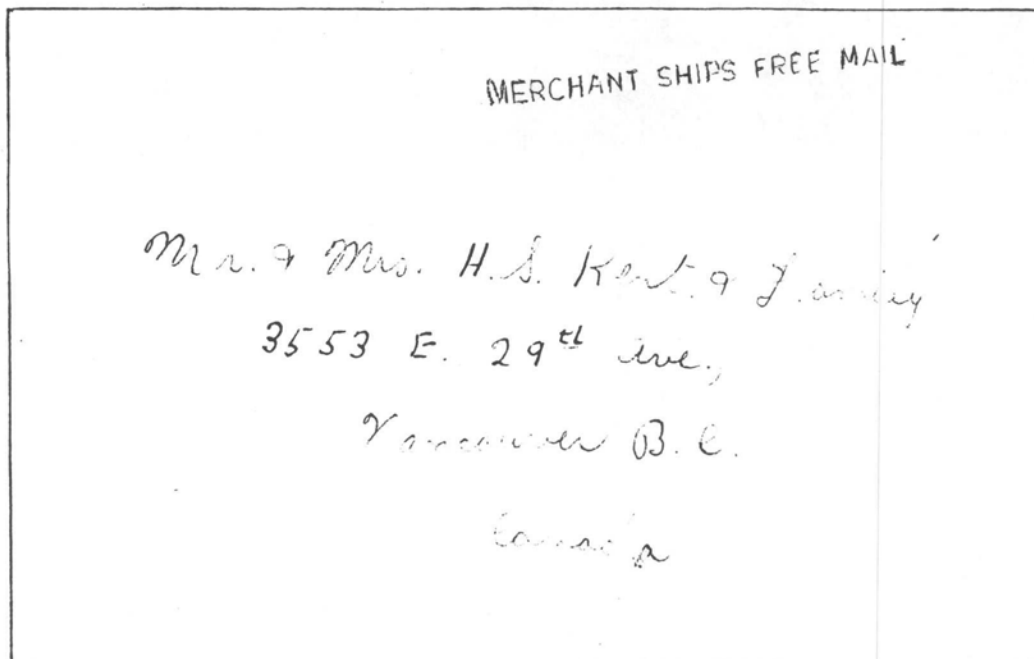 MERCHANT SHIPS FREE MAIL
Mr. & Mrs. H.S. Kent & Family
3553 E. 29th Ave.,
Vancouver B.C.
Canada